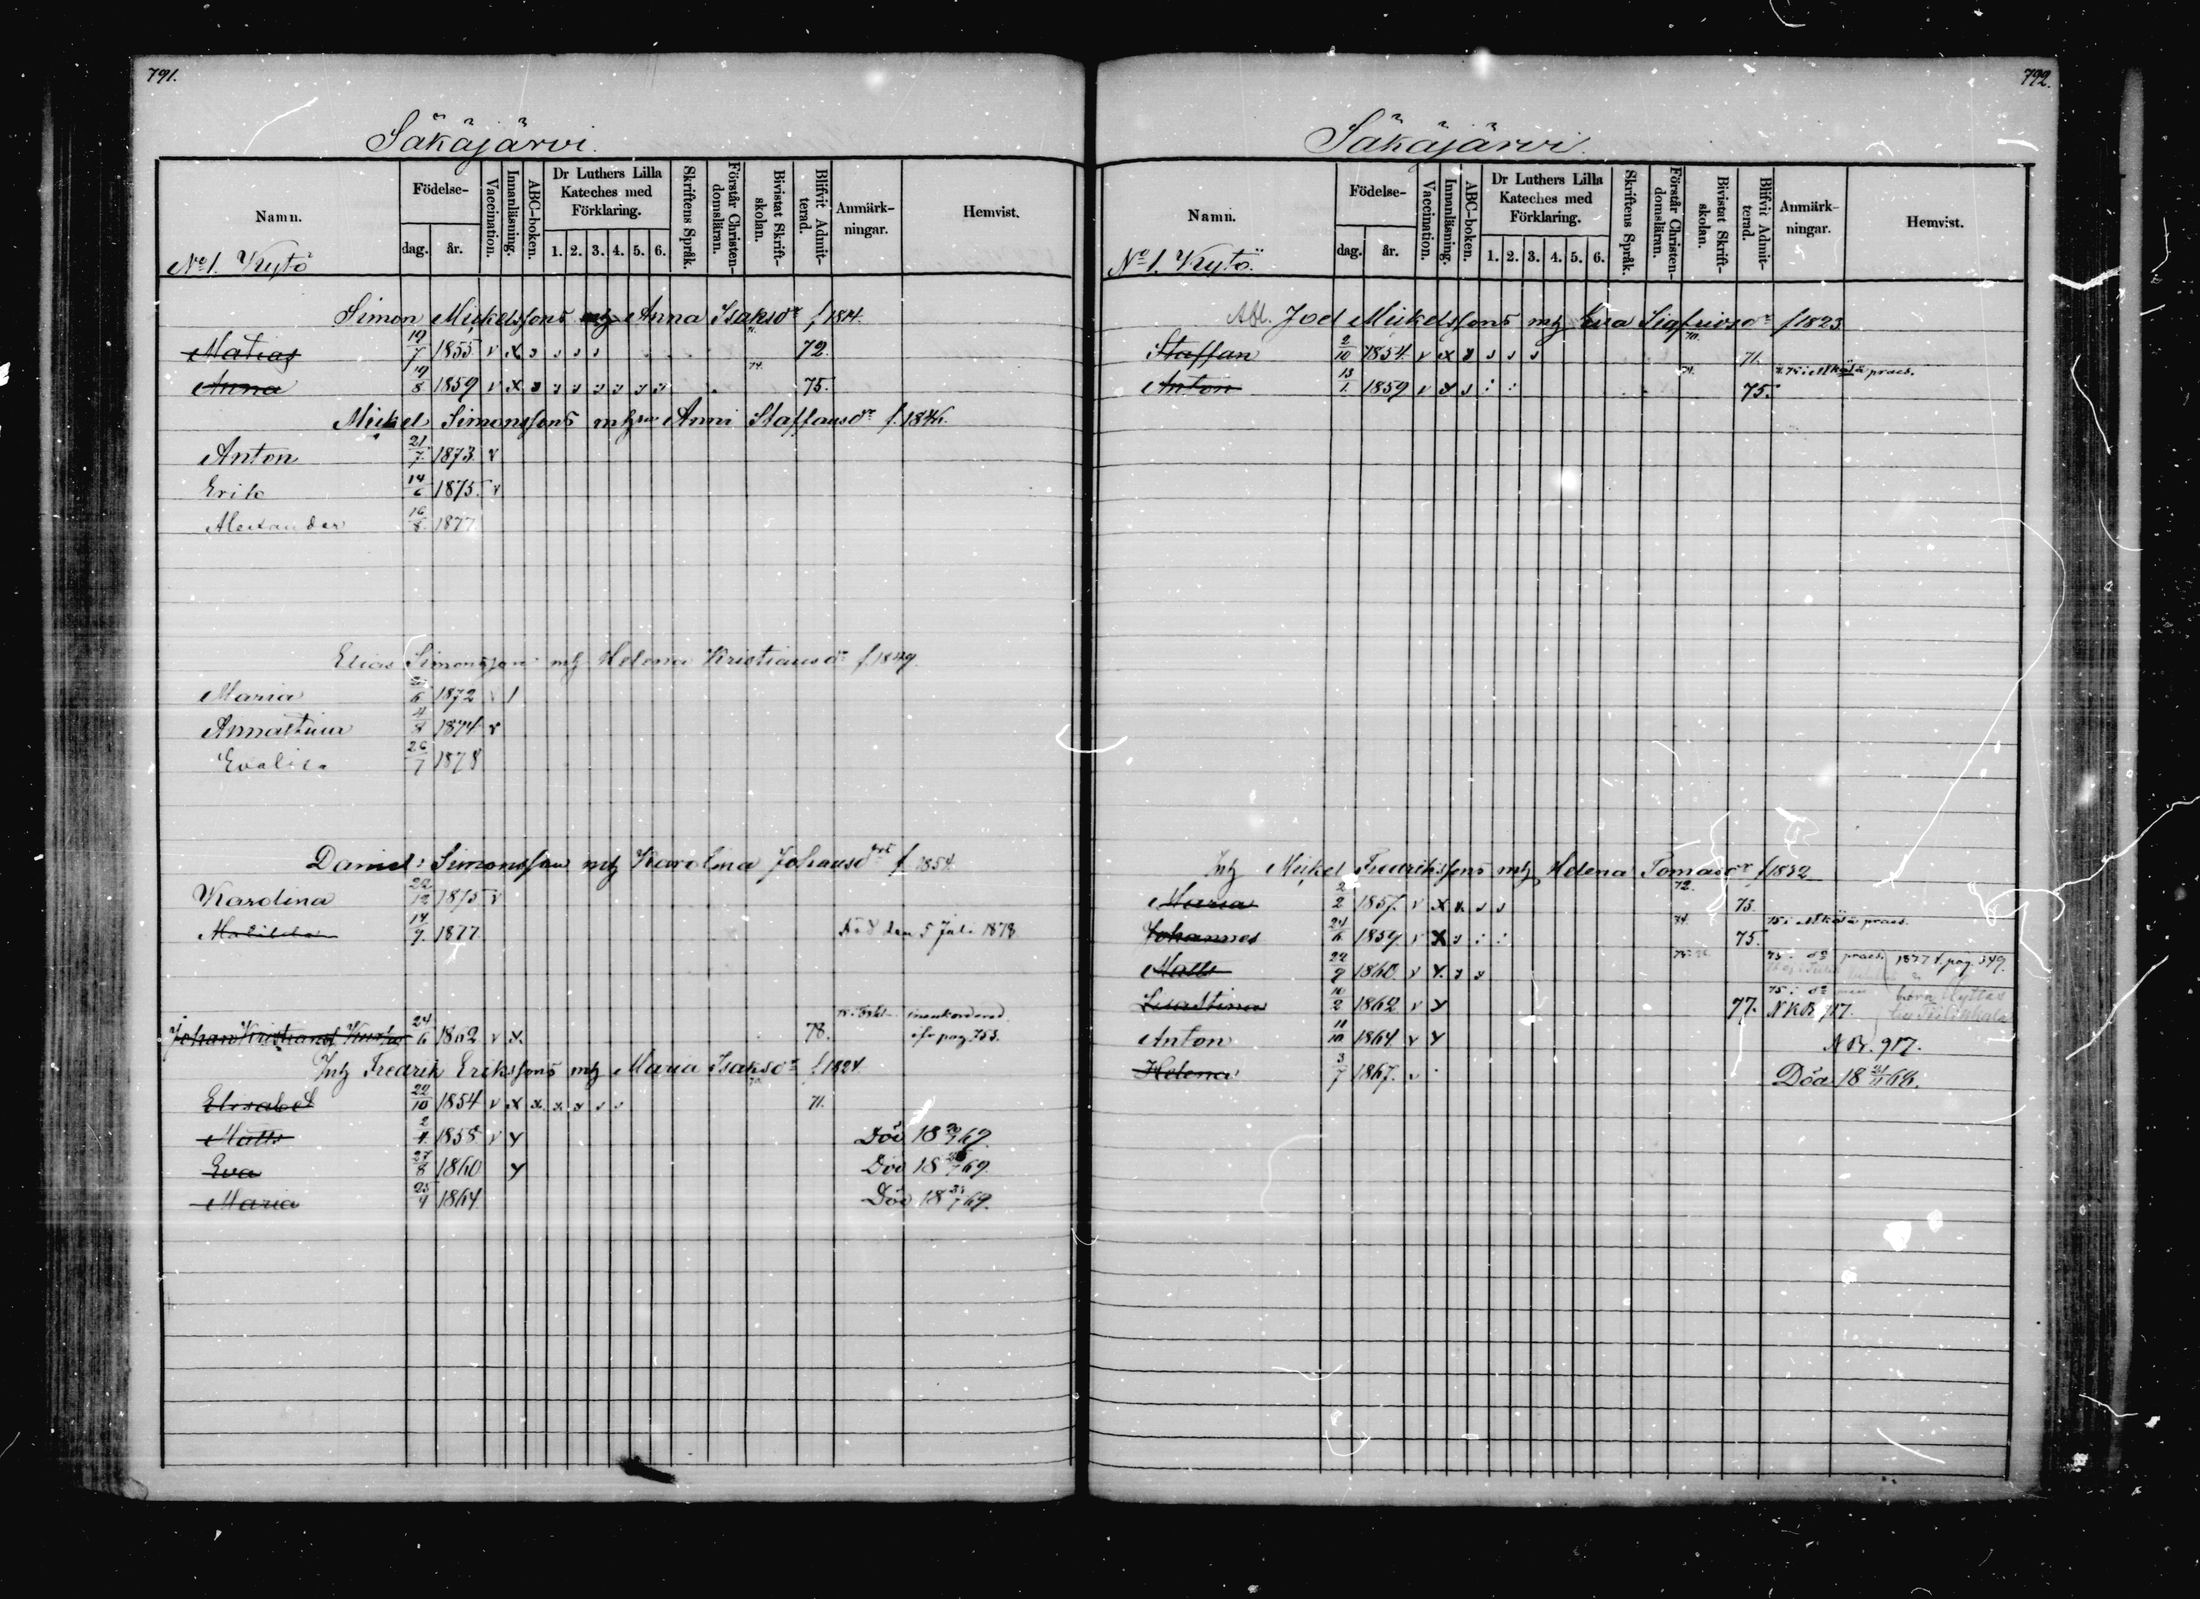 791.
Säkäjärvi.
Namn.
Födelse-
dag.
år.
Vaccination.
Innanläsning.
ABC-boken.
Dr Luthers Lilla Kateches med Förklaring.
1. 2. 3. 4. 5. 6.
Skriftens Språk.
Förstår Christendomsläran.
Bivistat Skriftskolan.
Blifvit Admitterad.
Anmärkningar.
Hemvist.
No 1. Kytö
Simon Mickelssons mh Anna Isaksdr f. 1814.
Matias 19/7 1855 v x 72.
Anna 19/8 1859 v x 74. 75.
Mickel Simonssons mh Anni Staffansdr f. 1846.
Anton 21/7 1873 v
Erik 14/6 1875 v
Alexander 16/8 1877
Elias Simonsson mh Helena Kristiansdr f. 1849.
Maria 6 1872 v 1
Annastina 4/8 1874 v
Evalisa 26/7 1878
Daniel Simonsson mh Karolina Johansdr f. 1854.
Karolina 22/12 1875 v
Matilda 14/9 1877 Död den 5 Juli 1878
Johan Kristians 24/6 1862 v x 78. pag 753.
Inh Fredrik Erikssons mh Maria Isaksdr f. 1824
Elisabet 22/10 1854 v x 71.
Matts 2/4 1858 v y Död 18 69.
Eva 27/8 1860 y Död 18 69.
Maria 25/4 1864 Död 18 69.
792.
Säkäjärvi.
Namn.
Födelse-
dag.
år.
Vaccination.
Innanläsning.
ABC-boken.
Dr Luthers Lilla Kateches med Förklaring.
1. 2. 3. 4. 5. 6.
Skriftens Språk.
Förstår Christendomsläran.
Bivistat Skriftskolan.
Blifvit Admitterad.
Anmärkningar.
Hemvist.
No 1. Kytö.
Afl. Joel Mickelssons mh Eva Sigfridsdr f. 1823
Staffan 2/10 1854 v x 71.
Anton 13/1 1859 v y 74. 75. praes.
Inh Mickel Fredrikssons mh Helena Tomasdr f. 1832
Maria 2/2 1857. v x 72. 73.
Johannes 24/6 1859 v x 74. 75. praes.
Matts 22/9 1860 v y praes. 1877 f. pag. 349.
Lisastina 10/2 1862 v y 77. N KB 917.
Anton 11/10 1864 v y N Br. 917.
Helena 3/7 1867. v Död 18 68.